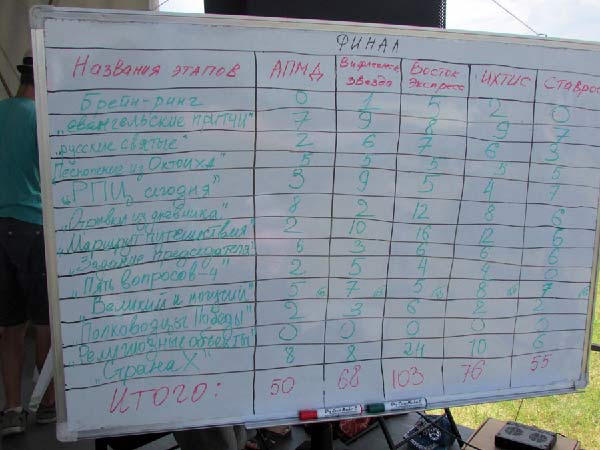 ФИНАЛ
Названия этапов АПМД звезда Восток Экспресс ИХТИС Ставрос
Брейн-ринг 0 1 5 2 0
„Евангельские притчи" 7 9 8 9 7
„Русские святые" 2 6 7 6 3
Песнопение из Октоиха" 5 5 5 5 5
„РПИ сегодня" 3 9 5 4 7
„Отрывки из дневника" 8 2 12 8 6
„Маршрут путешествия" 2 10 16 12 6
„Задание председателя" 6 3 6 6 6
„Пять вопросов-4" 2 5 4 4 0
„Великий и могучий" 5 7 5 8 7
Полководцы Победы" 2 3 6 2 2
„Религиозные объекты" 0 0 0 0
„Страна X" 8 8 24 10 6
ИТОГО: 50 68 103 76 55